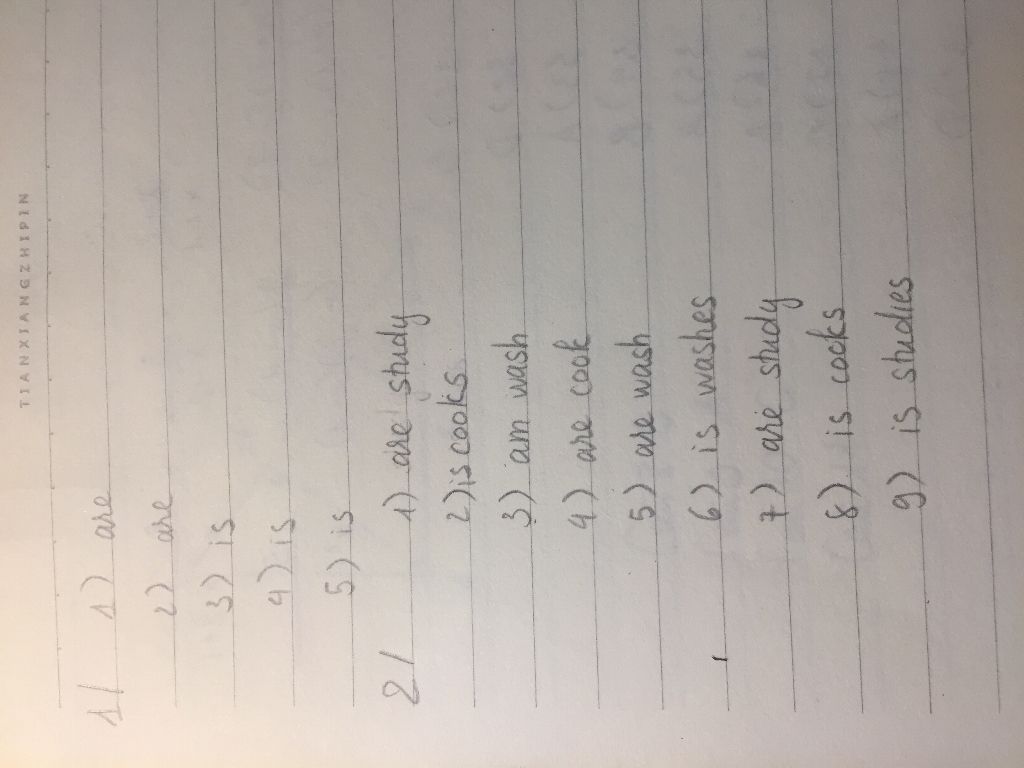 TIANXIANGZHIPIN
1/ 1) are
2) are
3) is
4) is
5) is
2/ 1) are study
2) is cooks
3) am wash
4) are cook
5) are wash
6) is washes
7) are study
8) is cocks
9) is studies